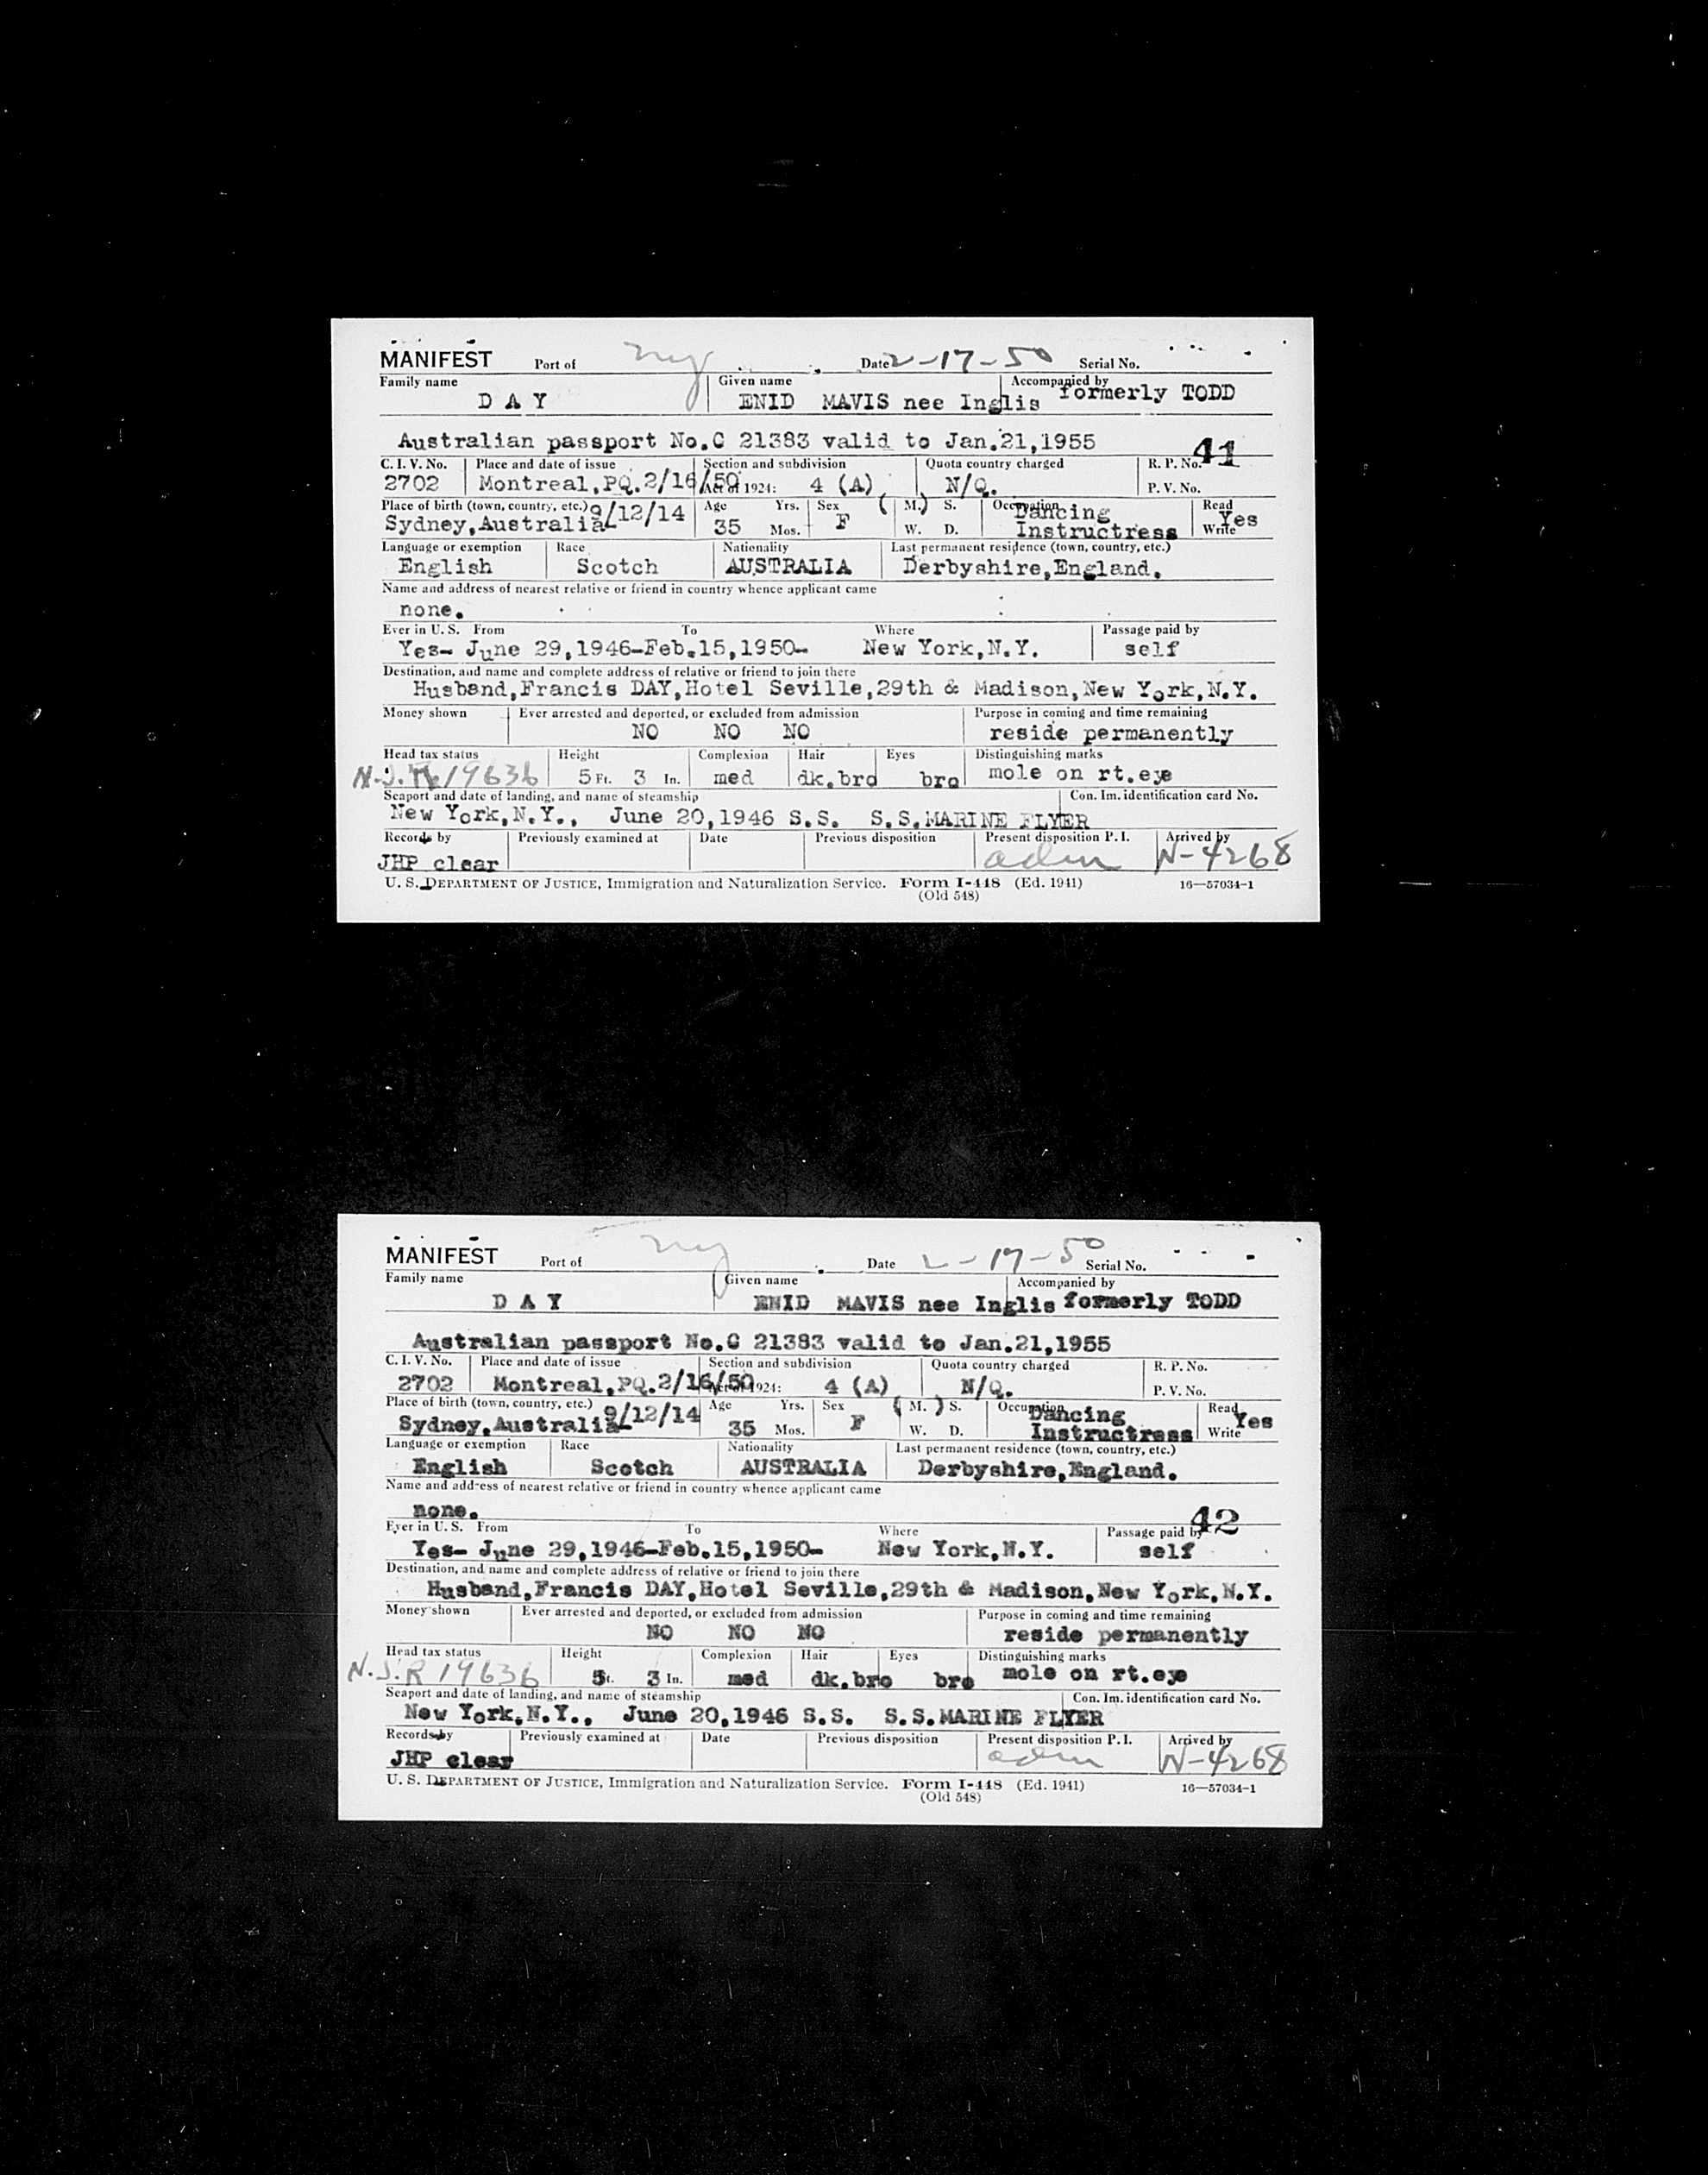 MANIFEST Port of ny Date 2-17-50 Serial No.
Family name Given name Accompanied by
D A Y ENID MAVIS nee Inglis formerly TODD
Australian passport No.C 21383 valid to Jan.21,1955 41
C. I. V. No. Place and date of issue Section and subdivision Quota country charged R. P. No.
2702 Montreal,PQ.2/16/50 Act of 1924: 4 (A) N/Q. P. V. No.
Place of birth (town, country, etc.) 9/12/14 Age Yrs. Sex (M.) S. Occupation Dancing Read Yes
Sydney,Australia 35 Mos. F W. D. Instructress Write
Language or exemption Race Nationality Last permanent residence (town, country, etc.)
English Scotch AUSTRALIA Derbyshire,England.
Name and address of nearest relative or friend in country whence applicant came
none.
Ever in U. S. From To Where Passage paid by
Yes- June 29,1946-Feb.15,1950- New York,N.Y. self
Destination, and name and complete address of relative or friend to join there
Husband,Francis DAY,Hotel Seville,29th & Madison,New York,N.Y.
Money shown Ever arrested and deported, or excluded from admission Purpose in coming and time remaining
NO NO NO reside permanently
Head tax status Height Complexion Hair Eyes Distinguishing marks
19636 5 Ft. 3 In. med dk.bro bro mole on rt.eye
Seaport and date of landing, and name of steamship Con. Im. identification card No.
New York,N.Y., June 20,1946 S.S. S.S.MARINE FLYER
Records by Previously examined at Date Previous disposition Present disposition P. I. Arrived by
JHP clear adm N-4268
U. S. DEPARTMENT OF JUSTICE, Immigration and Naturalization Service. Form I-448 (Ed. 1941) 16—57034-1
(Old 548)
MANIFEST Port of ny Date 2-17-50 Serial No.
Family name Given name Accompanied by
D A Y ENID MAVIS nee Inglis formerly TODD
Australian passport No.C 21383 valid to Jan.21,1955
C. I. V. No. Place and date of issue Section and subdivision Quota country charged R. P. No.
2702 Montreal,PQ.2/16/50 Act of 1924: 4 (A) N/Q. P. V. No.
Place of birth (town, country, etc.) 9/12/14 Age Yrs. Sex (M.) S. Occupation Dancing Read Yes
Sydney,Australia 35 Mos. F W. D. Instructress Write
Language or exemption Race Nationality Last permanent residence (town, country, etc.)
English Scotch AUSTRALIA Derbyshire,England.
Name and address of nearest relative or friend in country whence applicant came
none. 42
Ever in U. S. From To Where Passage paid by
Yes- June 29,1946-Feb.15,1950- New York,N.Y. self
Destination, and name and complete address of relative or friend to join there
Husband,Francis DAY,Hotel Seville,29th & Madison,New York,N.Y.
Money shown Ever arrested and deported, or excluded from admission Purpose in coming and time remaining
NO NO NO reside permanently
Head tax status Height Complexion Hair Eyes Distinguishing marks
N.J.R 19636 5 Ft. 3 In. med dk.bro bro mole on rt.eye
Seaport and date of landing, and name of steamship Con. Im. identification card No.
New York,N.Y., June 20,1946 S.S. S.S.MARINE FLYER
Records by Previously examined at Date Previous disposition Present disposition P. I. Arrived by
JHP clear adm N-4268
U. S. DEPARTMENT OF JUSTICE, Immigration and Naturalization Service. Form I-448 (Ed. 1941) 16—57034-1
(Old 548)